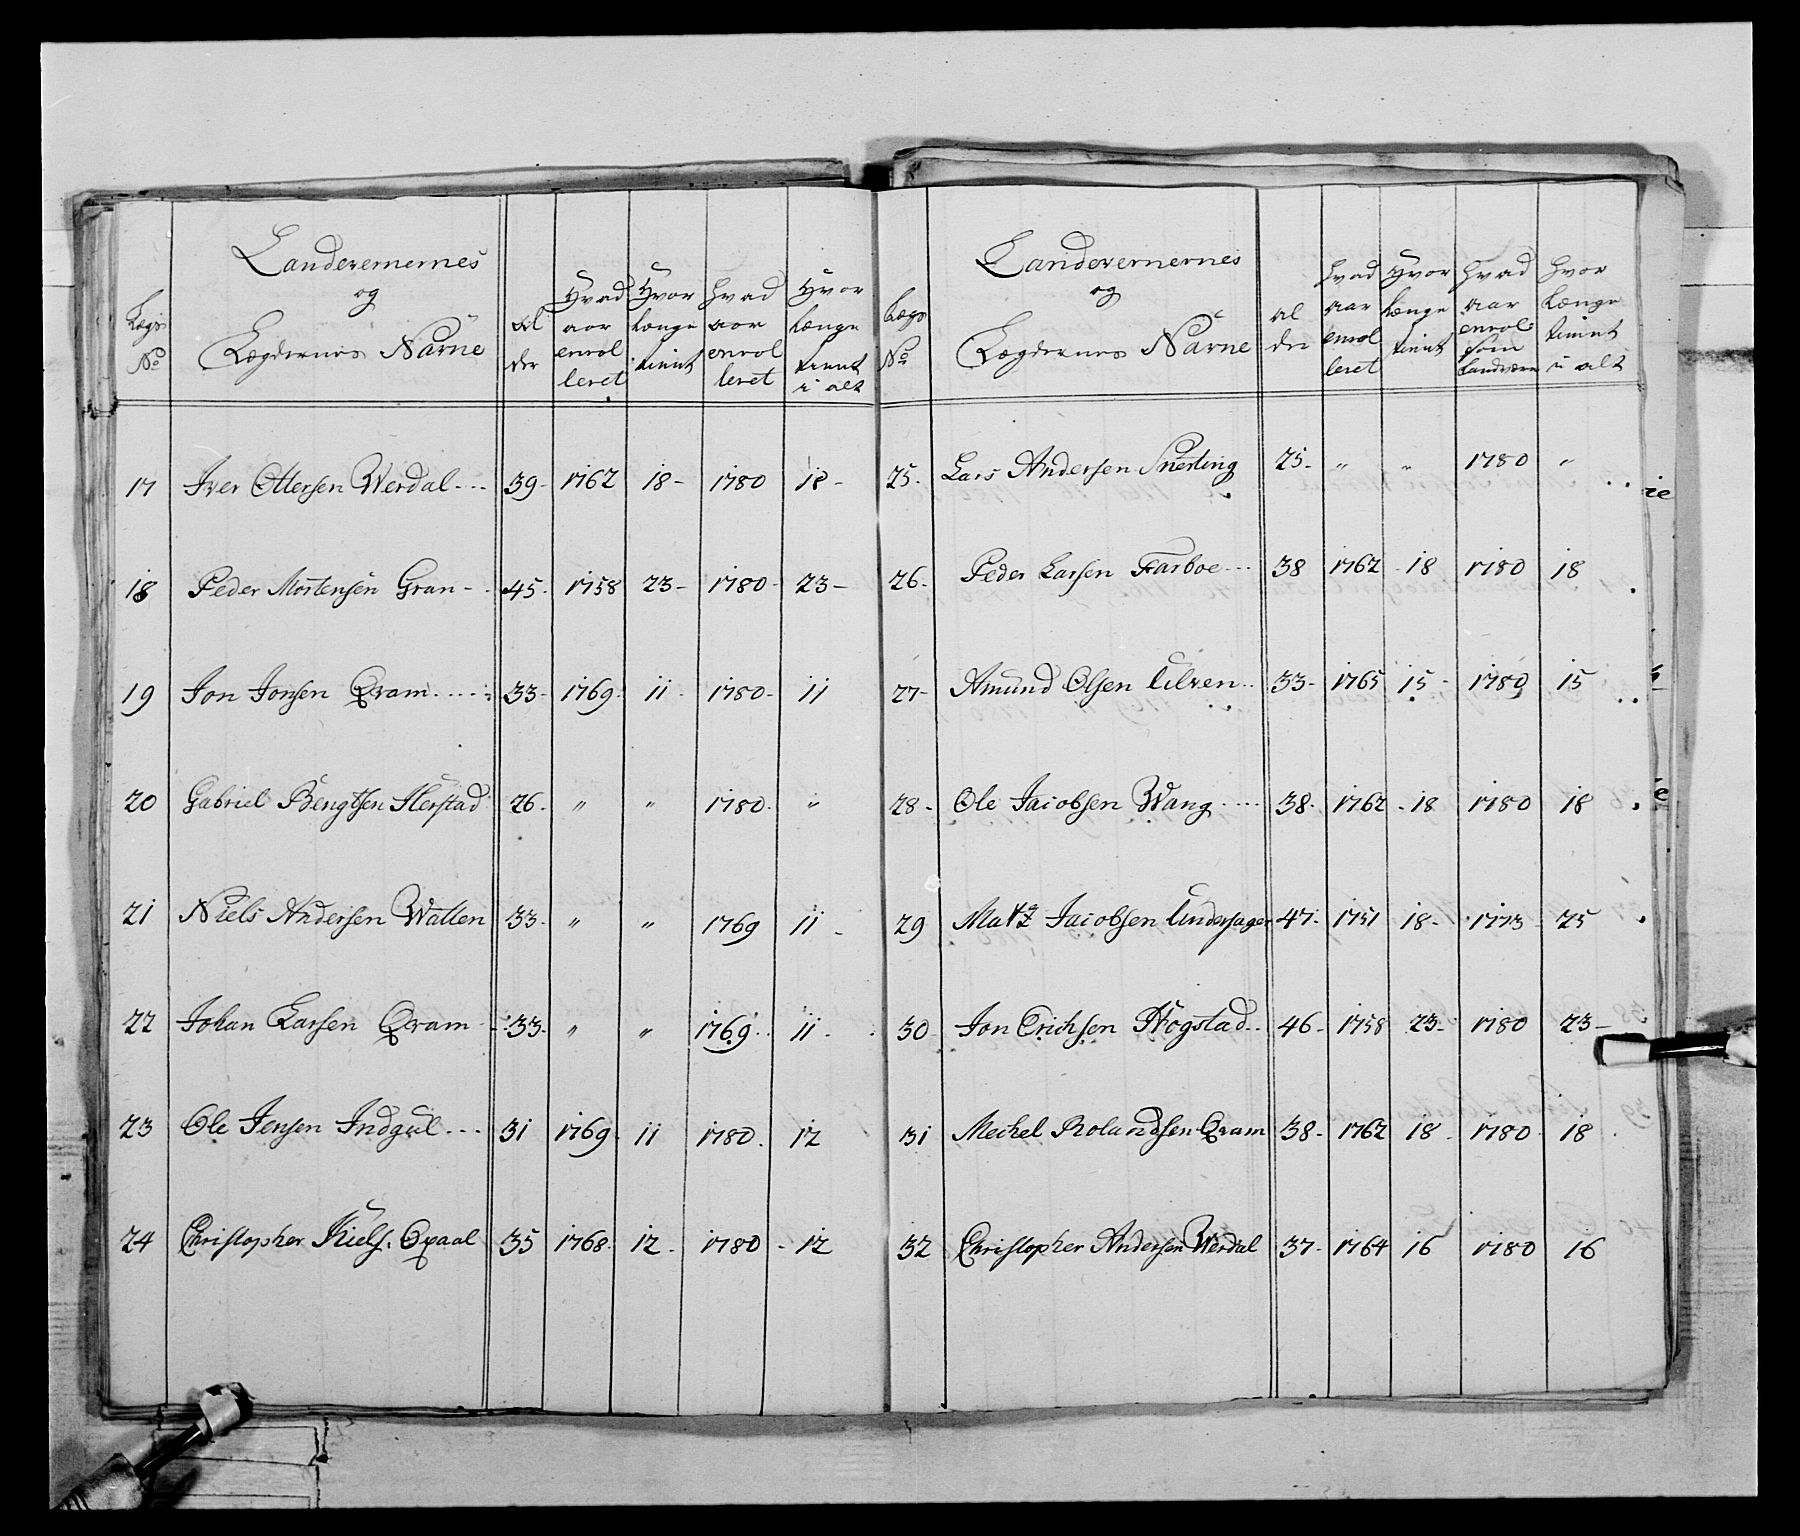 Lægs No
Landevernernes og Lægdernes Navne
al der
Hvad aar enrol leret
Hvor længe tient
hvad aar enrol leret
Hvor længe tient i alt
17 Iver Ottersen Werdal 39 1762 18 1780 18
18 Peder Mortensen Gran 45 1758 23 1780 23
19 Jon Jonsen Qvam 33 1769 11 1780 11
20 Gabriel Bengtsen Herstad 26 " " 1780 "
21 Niels Andersen Watten 33 " " 1769 11
22 Johan Larsen Qvam 33 " " 1769 11
23 Ole Jensen Indgul 31 1769 11 1780 12
24 Christopher Niels. Opaal 35 1768 12 1780 12
Lægs No
Landevernernes og Lægdernes Navne
al der
hvad aar enrol leret
Hvor længe tient
hvad aar enrol som Landværn
hvor længe tient i alt
25 Lars Andersen Snerting 25 " " 1780 "
26 Peder Larsen Farboe 38 1762 18 1780 18
27 Amund Olsen Ulven 33 1765 15 1780 15
28 Ole Jacobsen Wang 38 1762 18 1780 18
29 Matz Jacobsen Undersager 47 1751 18 1773 25
30 Jon Erichsen Høgstad 46 1758 23 1780 23
31 Mechel Rolandsen Qvam 38 1762 18 1780 18
32 Christopher Andersen Werdal 37 1764 16 1780 16